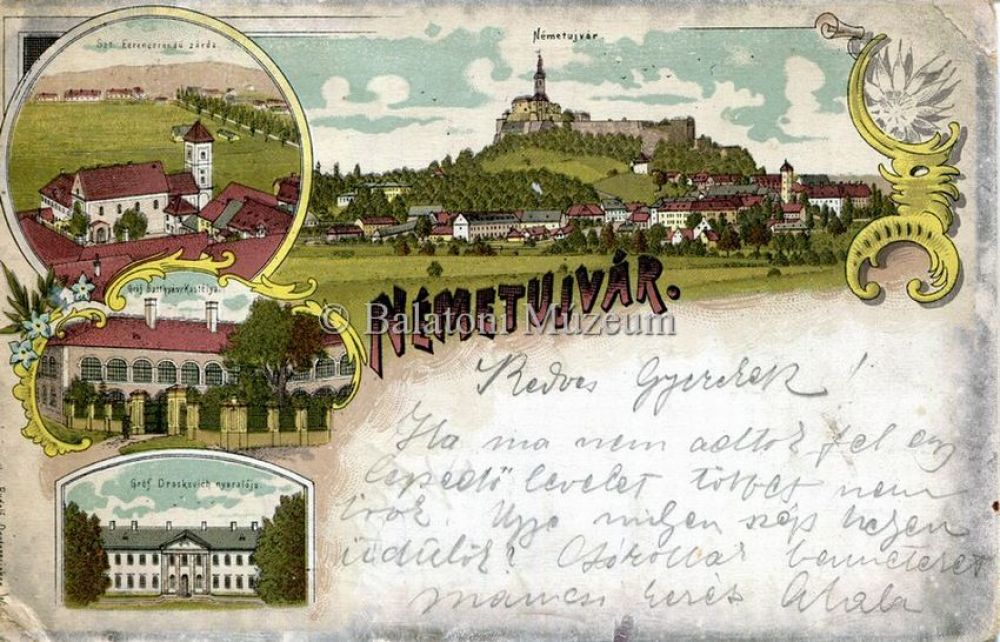 Szt. Ferencrendü zárda.
Németujvár.
Gróf Batthyány Kastélya.
NÉMETUJVÁR.
© Balatoni Múzeum
Gróf Draskovich nyaralója.
Kedves Gyerekek!
Ha ma nem adtok fel egy
lepedő levelet többet nem
irok. Ugye milyen szép helyen
üdülök? Csókollak benneteket
mamcsi